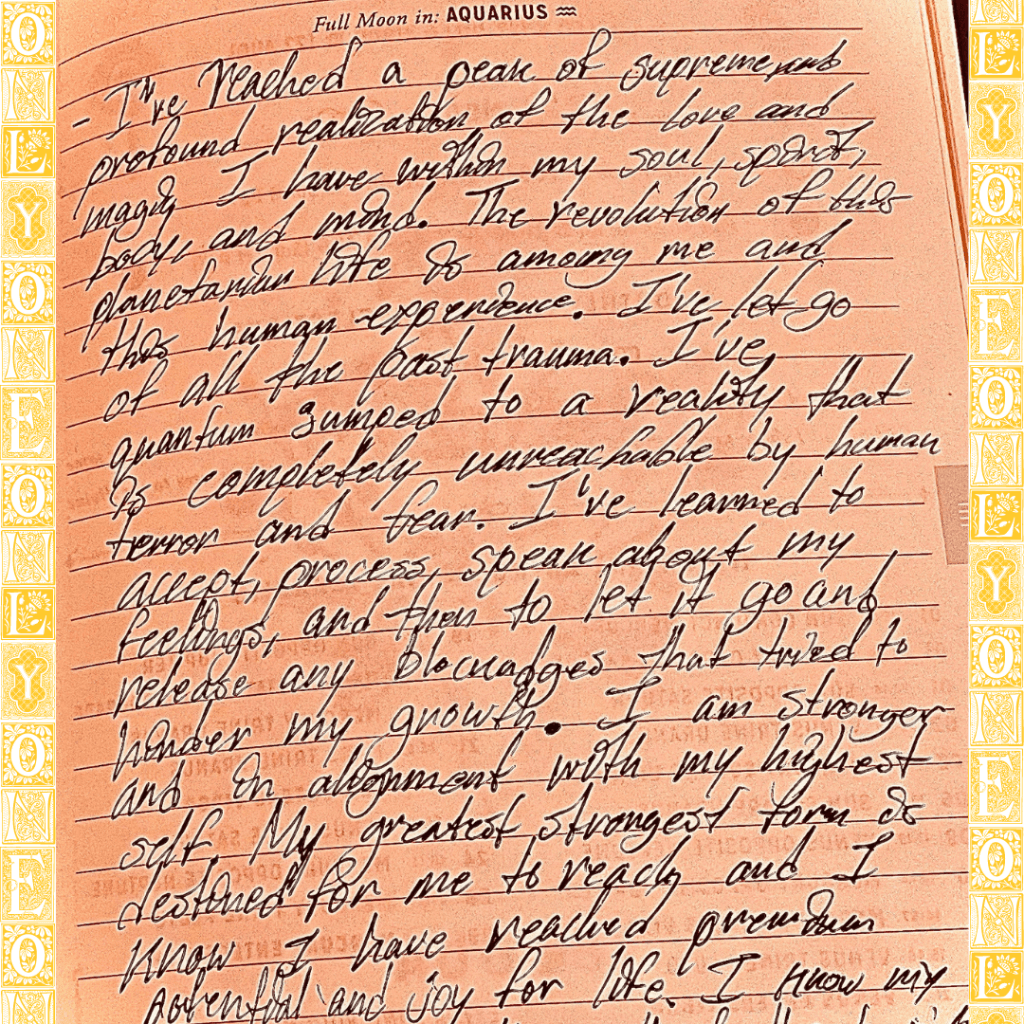 Full Moon in: AQUARIUS ♒
- I've reached a peak of supreme and
profound realization of the love and
magiq I have within my soul, spirit,
body, and mind. The revolution of this
planetarian life is among me and
this human experience. I've let go
of all the past trauma. I've
quantum jumped to a reality that
is completely unreachable by human
terror and fear. I've learned to
accept, process, speak about my
feelings, and then to let it go and
release any blockadges that tried to
hinder my growth. I am stronger
and in alignment with my highest
self. My greatest strongest form is
destined for me to reach and I
know I have reached premium
potential and joy for life. I know my